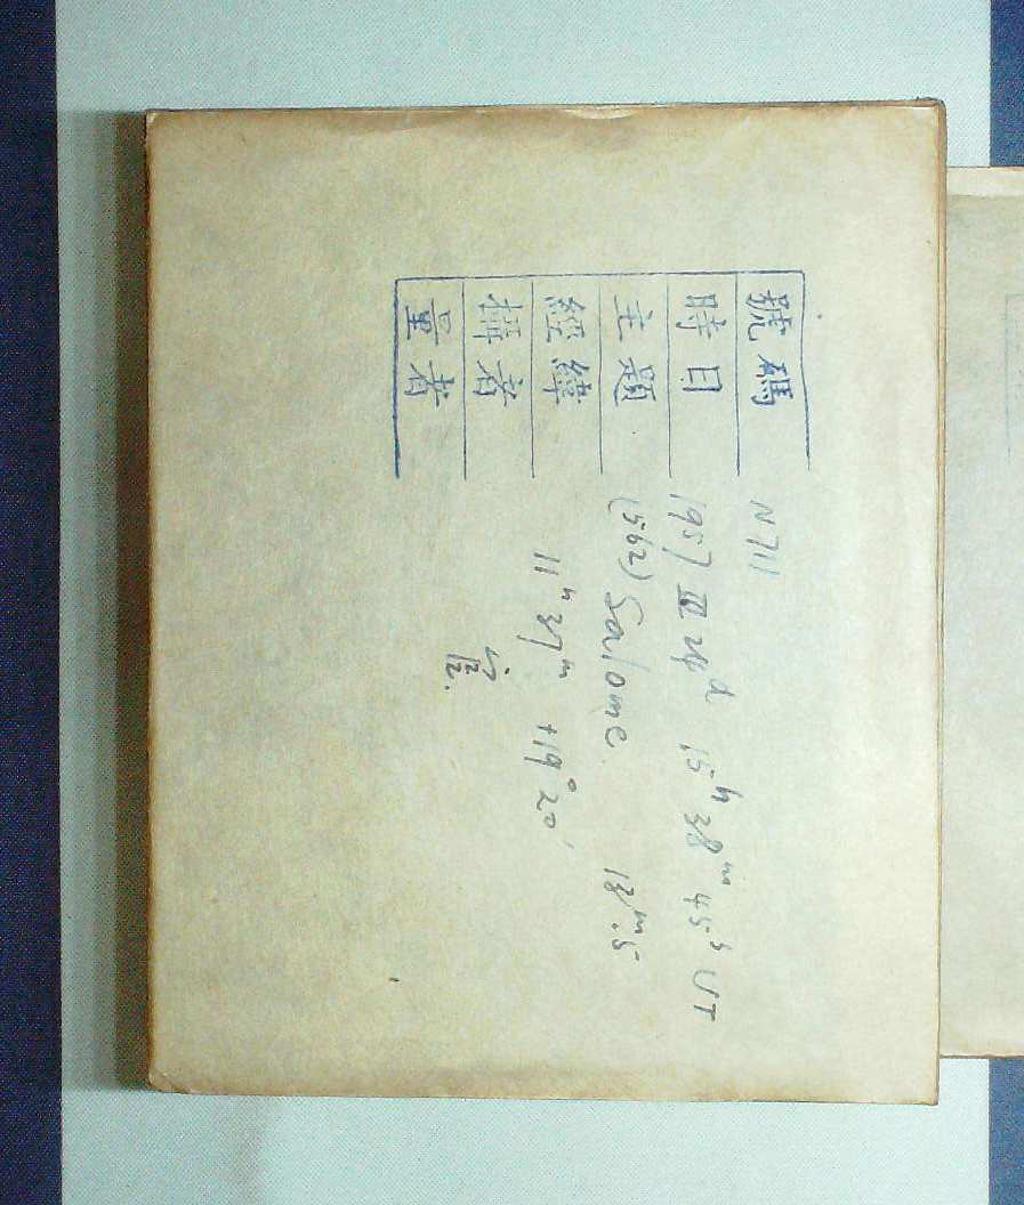 號碼 N711
時日 1957 III 28d 15h 38m 45s UT
主題 (562) Salome 13m.5
經緯 11h 37m +19° 20'
攝者
量者